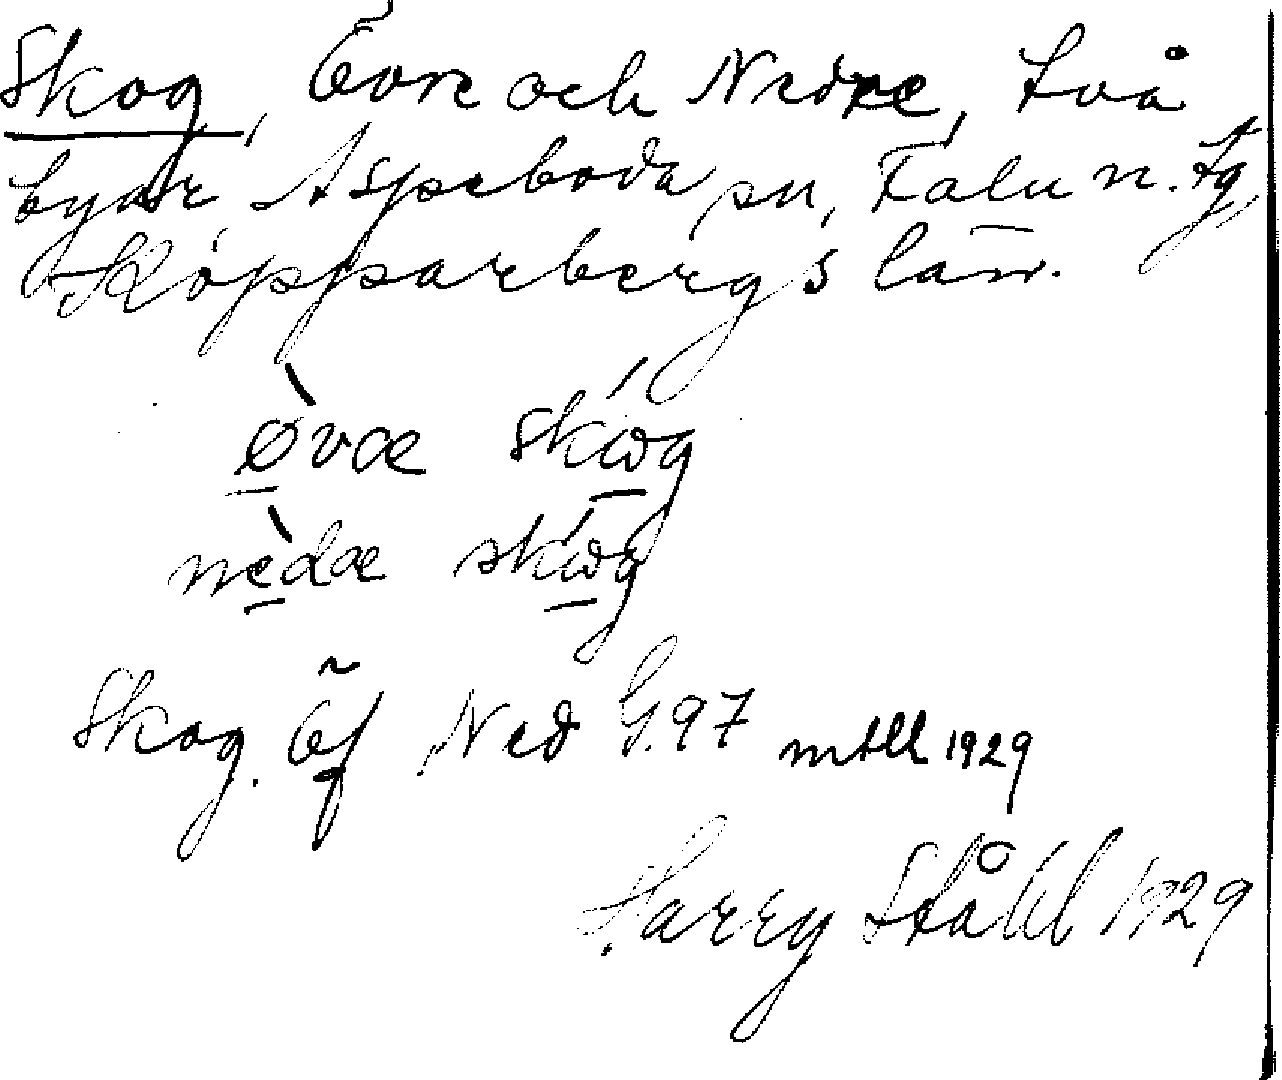 Skog, Övre och Nedre, två
byar, Aspeboda sn, Falu n. tg,
Kopparbergs län.
øvæ skωg
nedæ skωg
Skog. Öf Ned G.97 mtll 1929
Harry Ståhl 1929